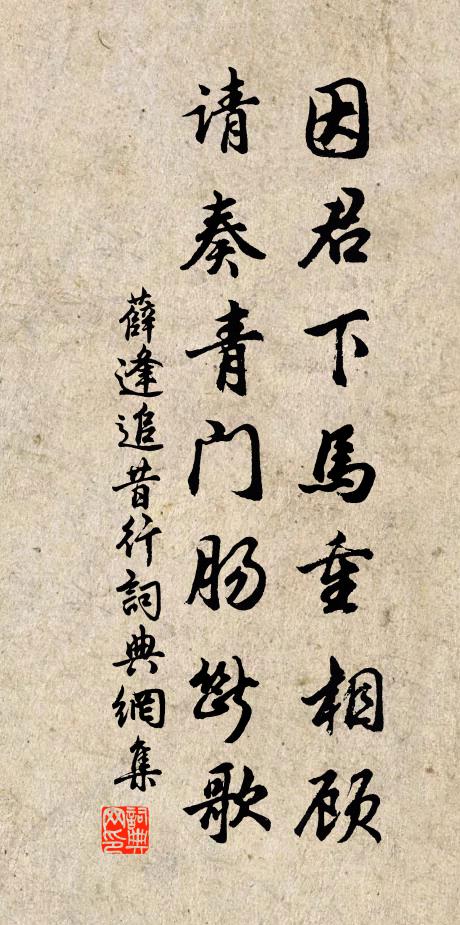 因君下馬重相顾
请奏青门肠断歌
薛逢追昔行詞典網集
詞典网印